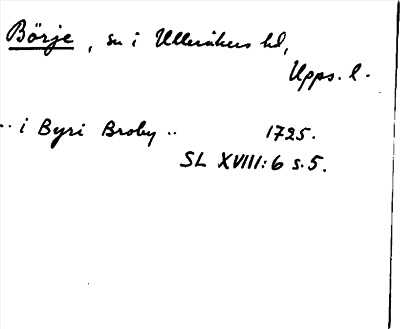 Börje, sn i Ulleråkers hd,
Upps. l.
.. i Byri Broby .. 1725.
SL XVIII:6 s.5.